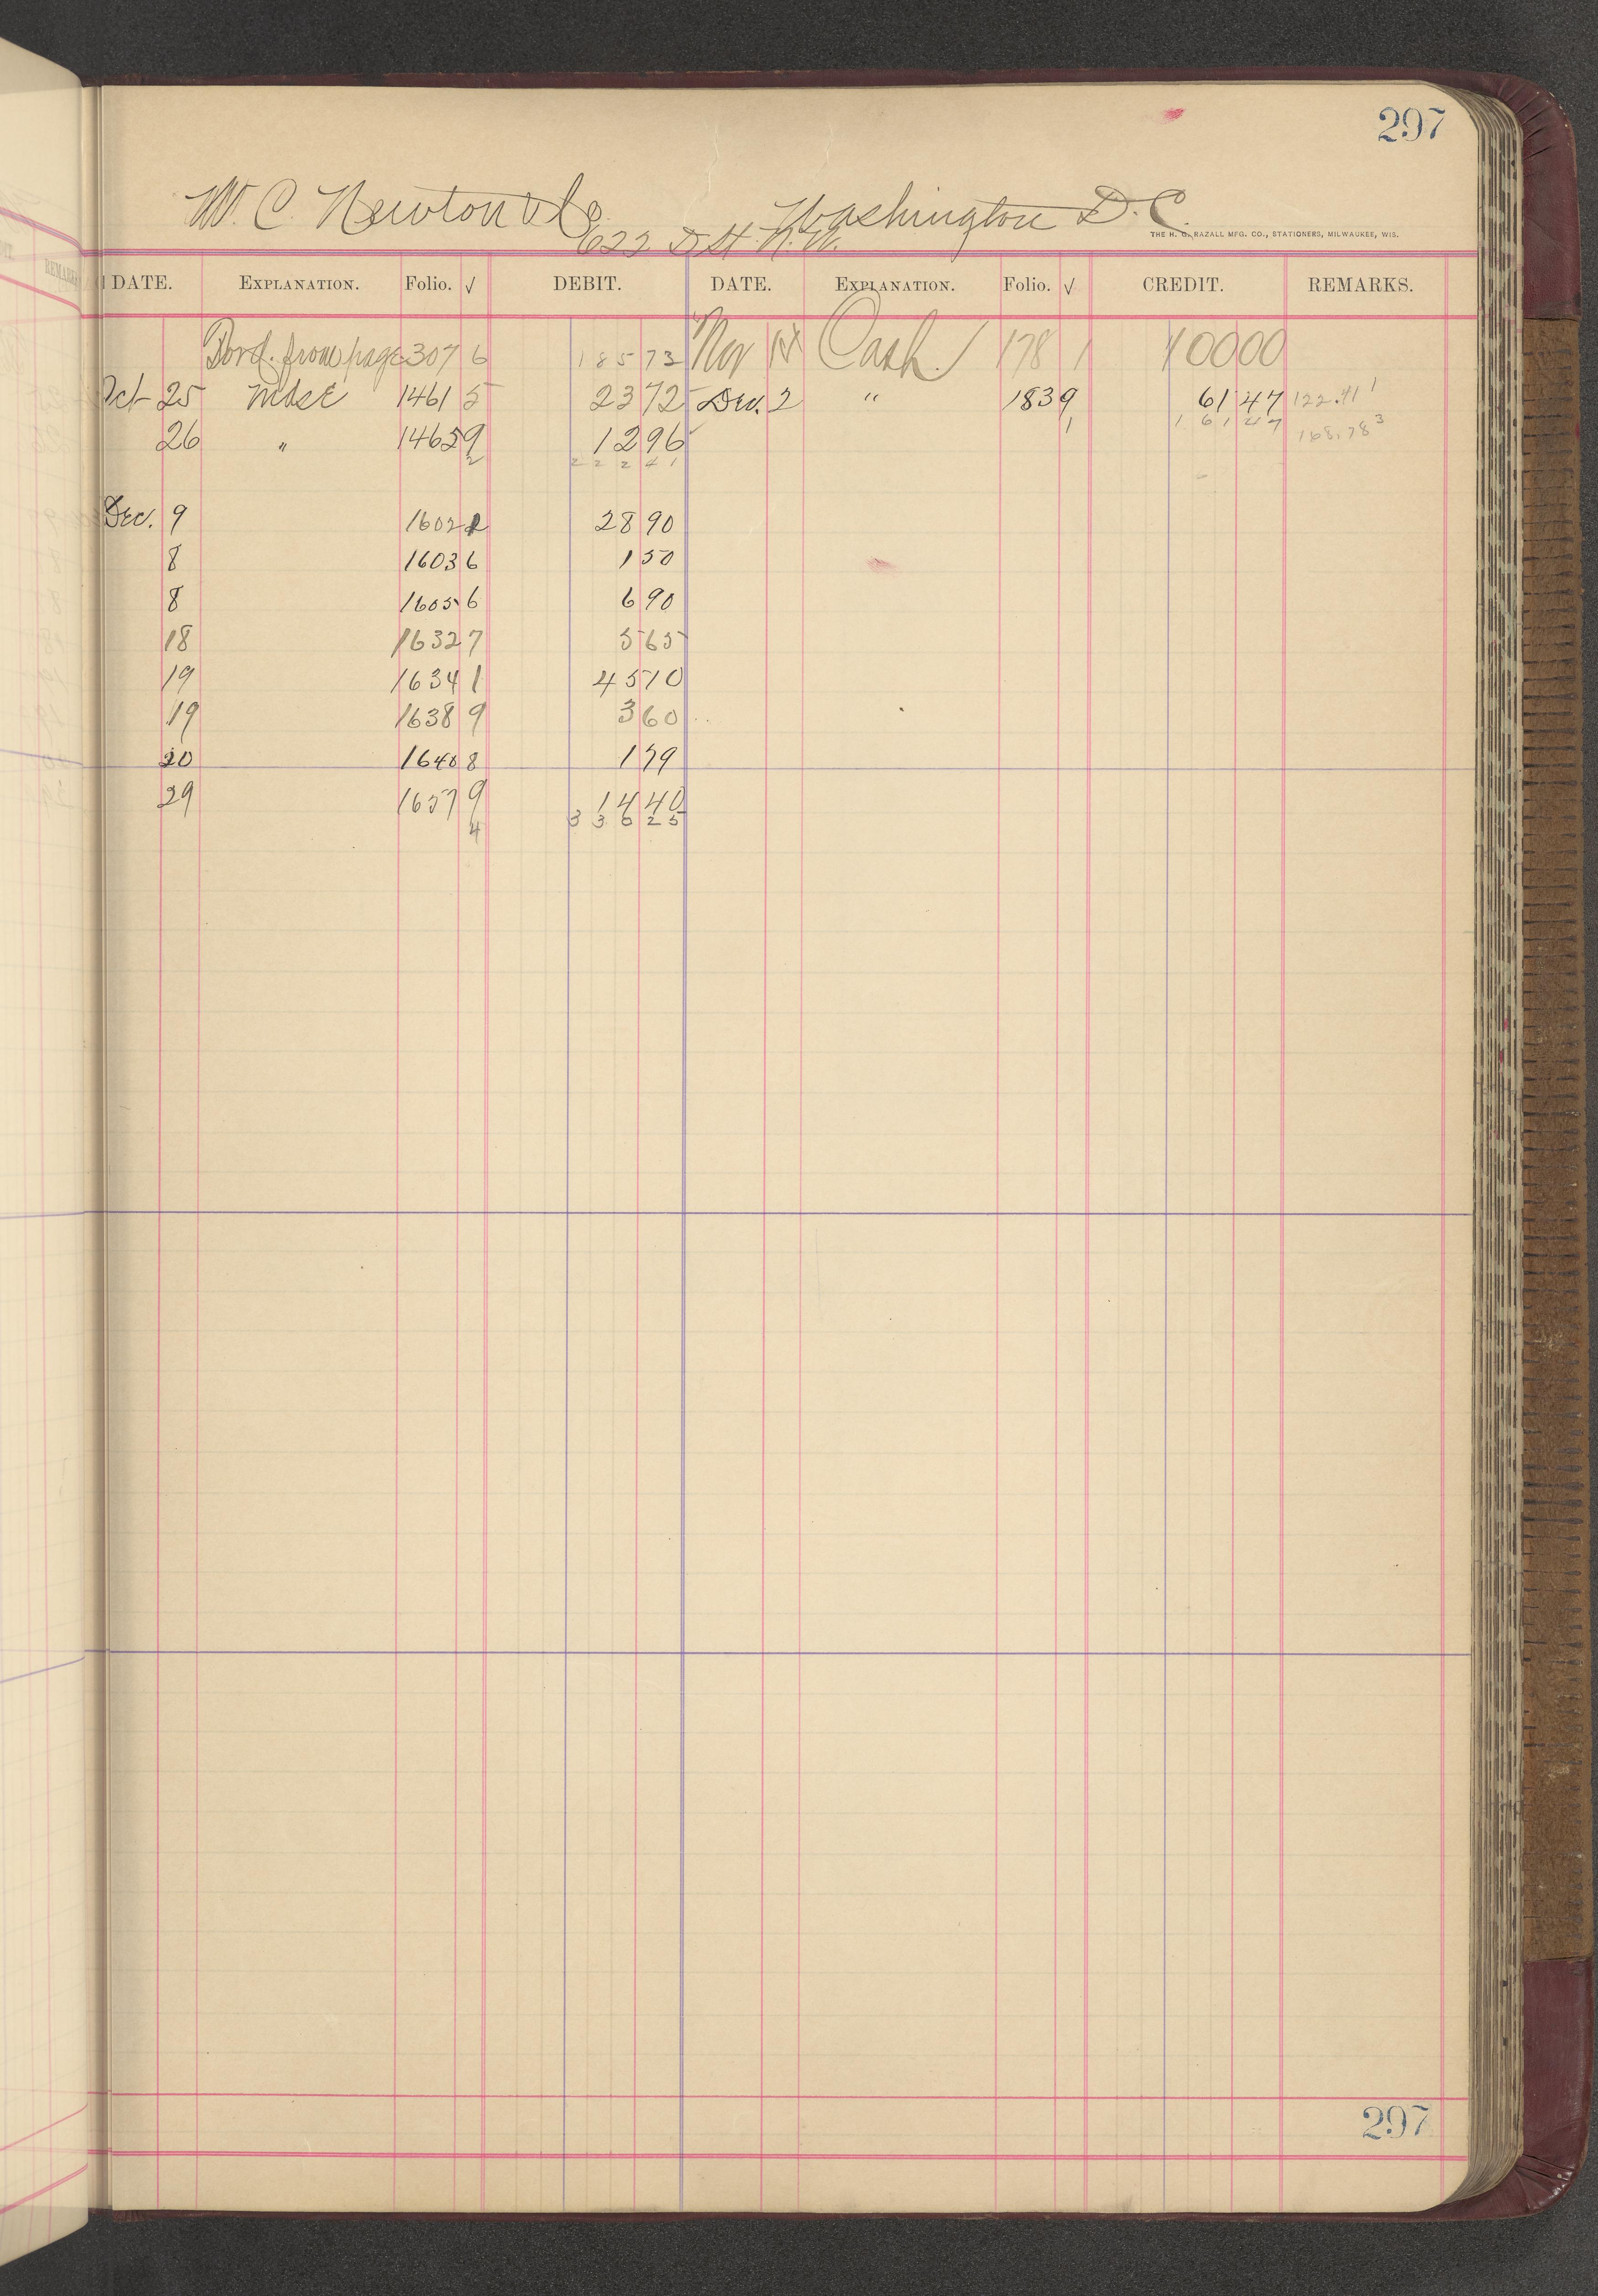 297
W. C. Newton & Co. Washington D.C.
622 D St. N.W.
THE H. G. RAZALL MFG. CO., STATIONERS, MILWAUKEE, WIS.
DATE. EXPLANATION. Folio. √ DEBIT. DATE. EXPLANATION. Folio. √ CREDIT. REMARKS.
Ford. from page 307 6 185 73 Nov Cash. 178 1 100 00
Oct 25 Mdse 1461 5 23 72 Dec. 2 " 183 9 61 47 122.41 1
26 " 1465 9 12 96 1 1 6 1 4 7 168.78 3
2 2 2 2 4 1
Dec. 9 1602 2 28 90
8 1603 6 1 50
8 1605 6 6 90
18 1632 7 5 65
19 1634 1 45 10
19 1638 9 3 60
20 1640 8 1 79
29 1657 9 14 40
4 3 3 0 2 5
297